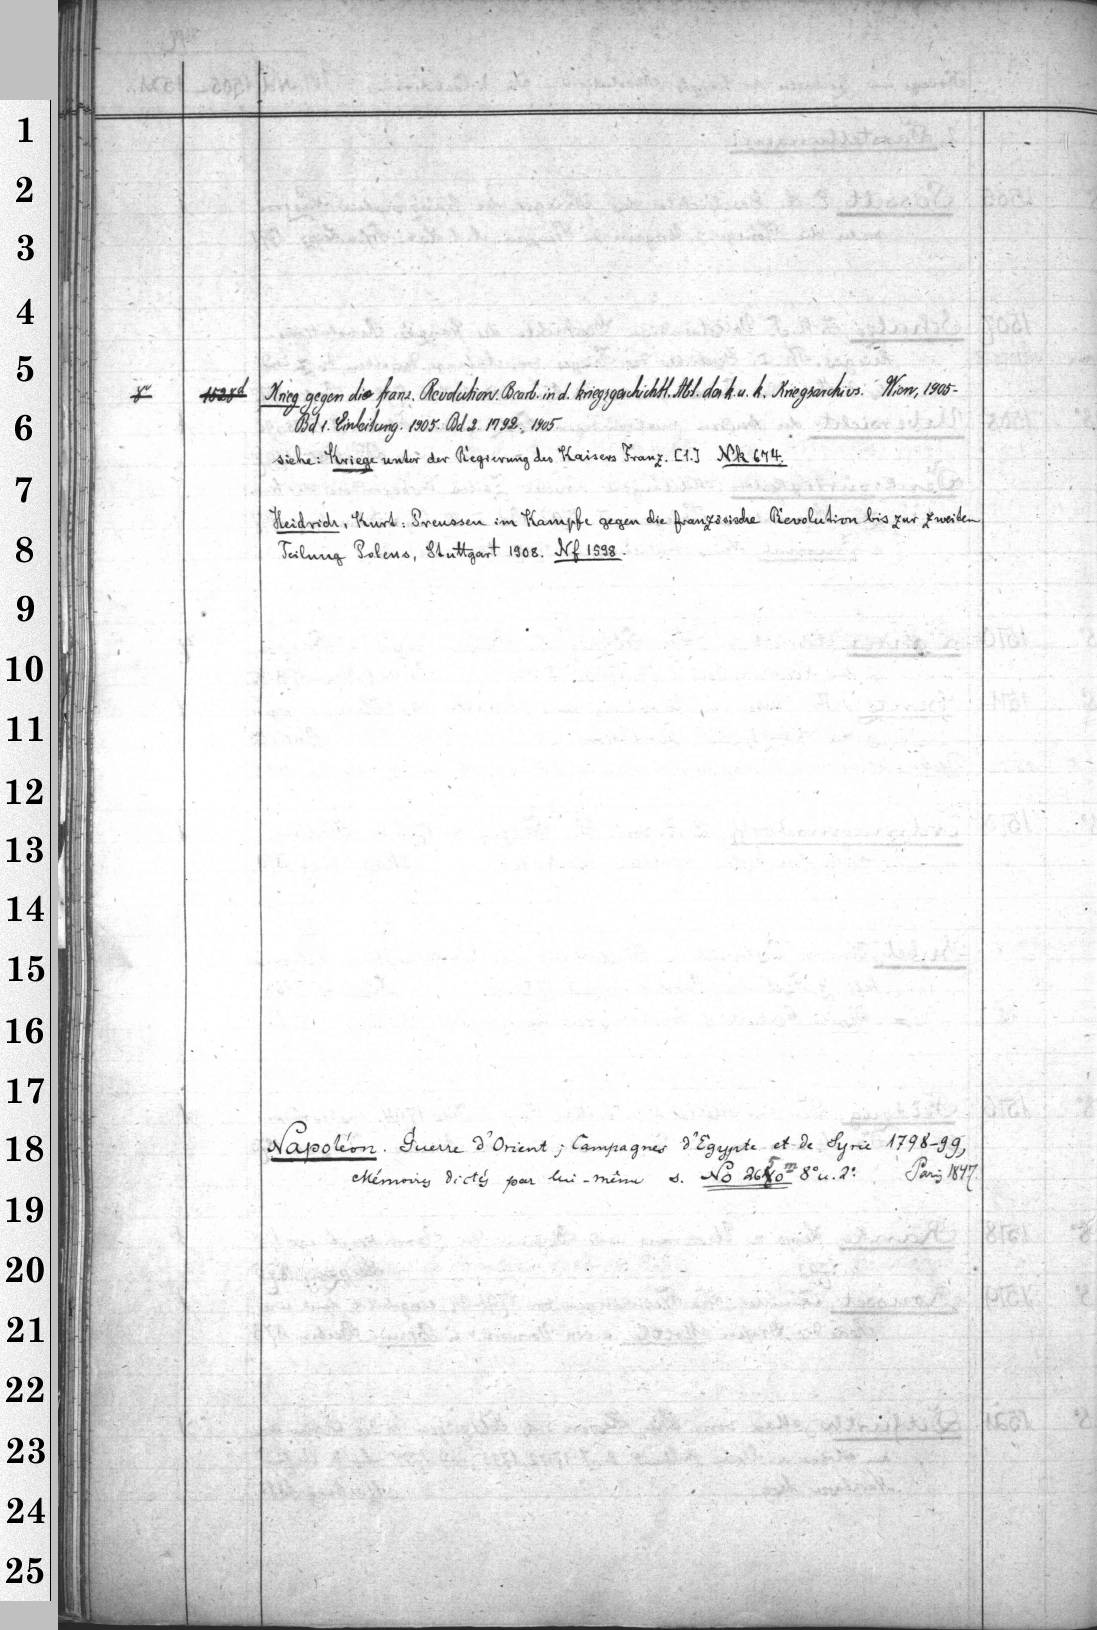 1
2
3
4
5
8° 1528d Krieg gegen die franz. Revolution. Bearb. in d. kriegsgeschichtl. Abt. des k. u. k. Kriegsarchivs. Wien, 1905-
6
Bd 1. Einleitung. 1905. Bd 2. 1792. 1905
siehe: Kriege unter der Regierung des Kaisers Franz. [1.] Nk 674.
7
Heidrich, Kurt: Preussen im Kampfe gegen die französische Revolution bis zur zweiten
8
Teilung Polens, Stuttgart 1908. Nf 1598.
9
10
11
12
13
14
15
16
17
18
Napoléon. Guerre d'Orient; Campagnes d'Egypte et de Syrie 1798-99,
Mémoires dictés par lui-même s. No 2650m 8° u. 2° Paris 1847.
19
20
21
22
23
24
25